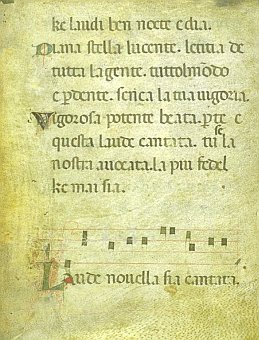 ke laudi ben nocte e dia.
Diana stella lucente. letitia de
tutta la gente. tutto lmōdo
e pdente. senca la tua vigoria.
Vigorosa potente beata. p te e
questa laude cantata. tu se la
nostra auocata. la piu fedel
ke mai sia.
Laude nouella sia cantata.